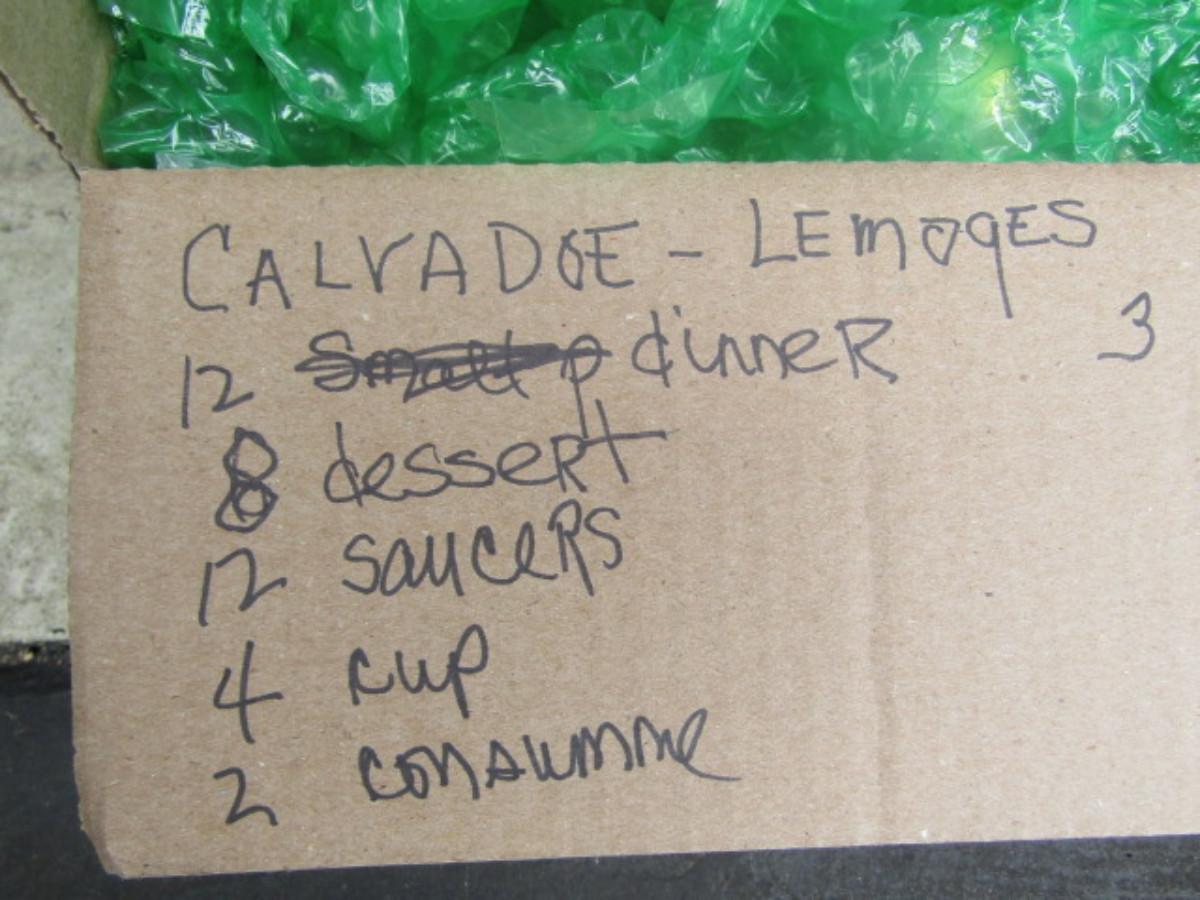 CALVADOE - LEMOGES
12 Small p dinner 3
8 dessert
12 saucers
4 cup
2 consumme